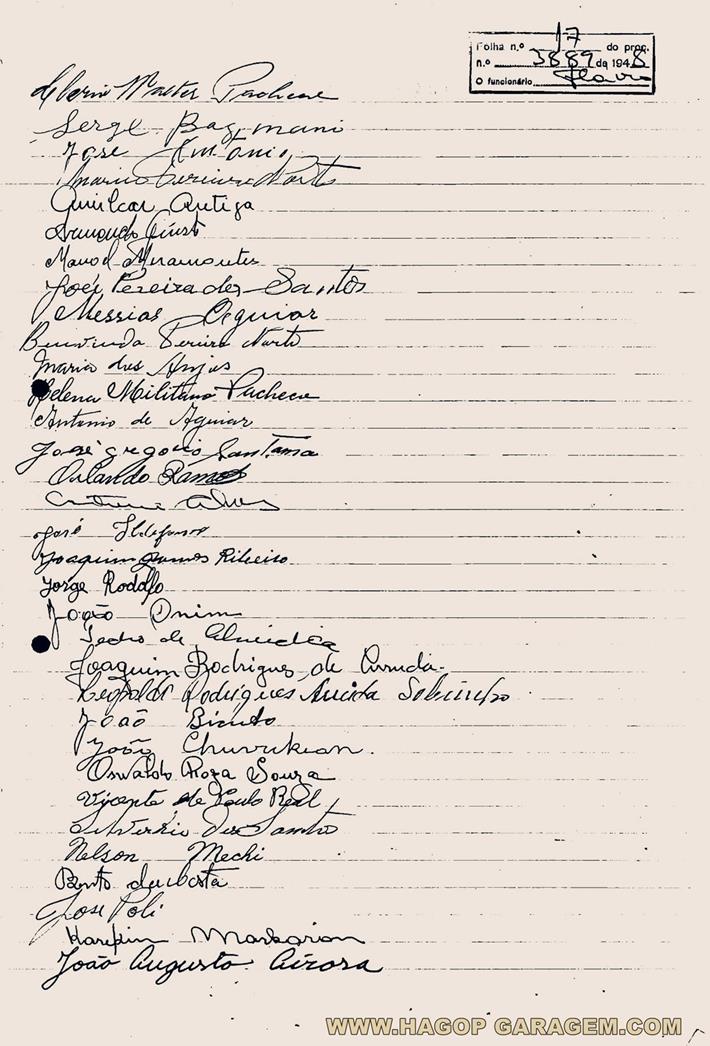 Folha n.º 17 do proc.
n.º 3889 de 1948
O funcionário Flavio
Walter Pacheco
Serge Bagmani
José Antonio
Mario Pereira Norte
Amilcar Artiga
Armando
Manoel Miramontes
José Pereira dos Santos
Messias Aguiar
Benvinda Pereira Norte
Maria dos Anjos
Helena Militano Pacheco
Antonio de Aguiar
José gregorio Santana
Orlando Ramos
Alves
José Ildefonso
Joaquim Gomes Ribeiro
Jorge Rodolfo
João Onim
Pedro de Almeida
Joaquim Rodrigues de Arruda.
Rodrigues Arruda Sobrinho
João
João Churukian.
Oswaldo Roza Souza
Vicente de Paulo Real
Silverio dos Santos
Nelson Mechi
Bento da Costa
José Poli
Karekin Markarian
João Augusto Airosa
WWW.HAGOP GARAGEM.COM